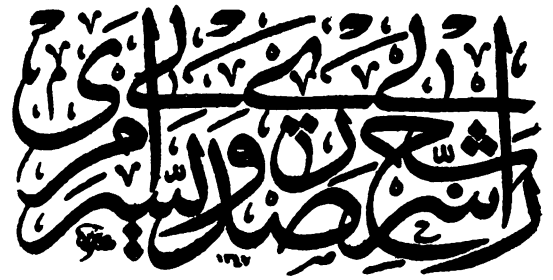 اشرح لي صدري ويسر لي أمري